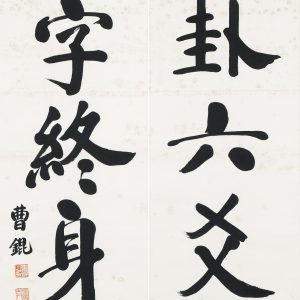 卦六爻
字終身
曹錕